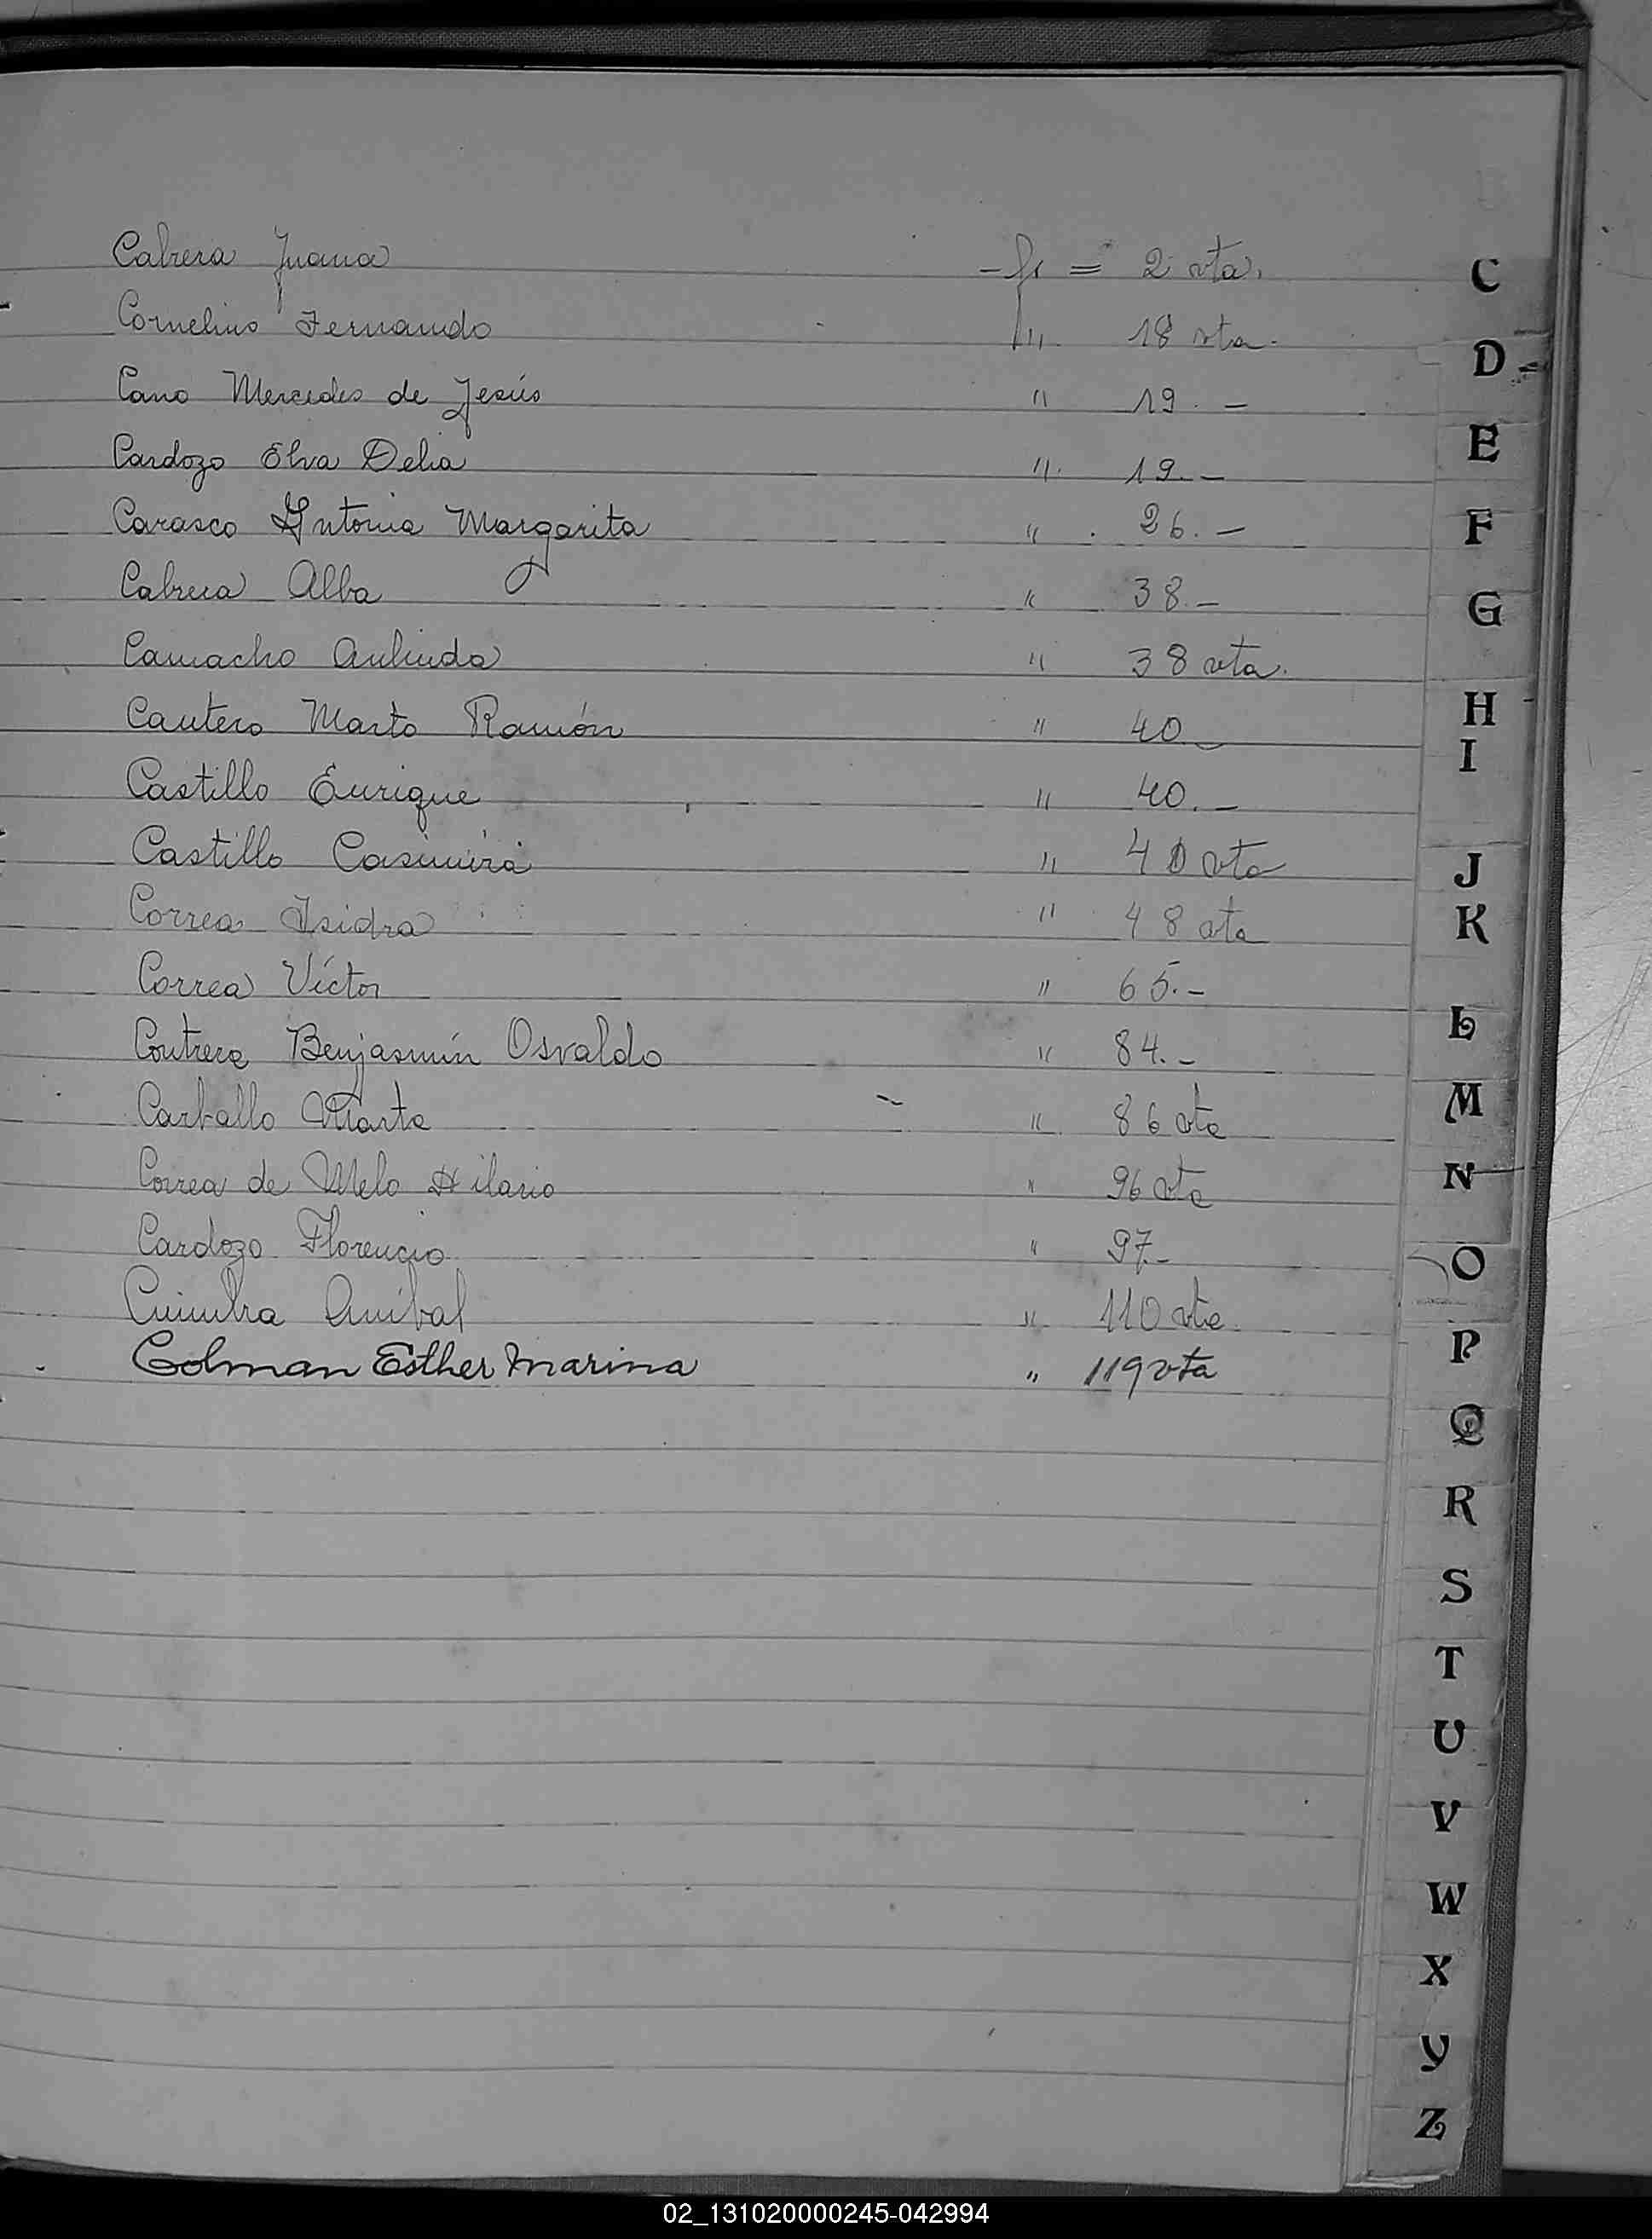 Cabrera Juana - fs = 2 vta.
Cornelius Fernando " 18 vta.
Cano Mercedes de Jesús " 19. -
Cardozo Elva Delia " 19. -
Carasco Antonia Margarita " 26. -
Cabrera Alba " 38. -
Camacho " 38 vta.
Cantero Marto Ramón " 40 -
Castillo Enrique " 40. -
Castillo Casimira " 40 vta
Correa Isidra " 48 vta
Correa Víctor " 65. -
Contrera Benjasmín Osvaldo " 84. -
Carballo Marta " 86 vta
Correa de Melo Hilario " 96 vta
Cardozo Florencio " 97. -
Cuimbra Aníbal " 110 vta.
Colman Esther Marina " 119 vta
C
D
E
F
G
H
I
J
K
L
M
N
O
P
Q
R
S
T
U
V
W
X
Y
Z
02_131020000245-042994